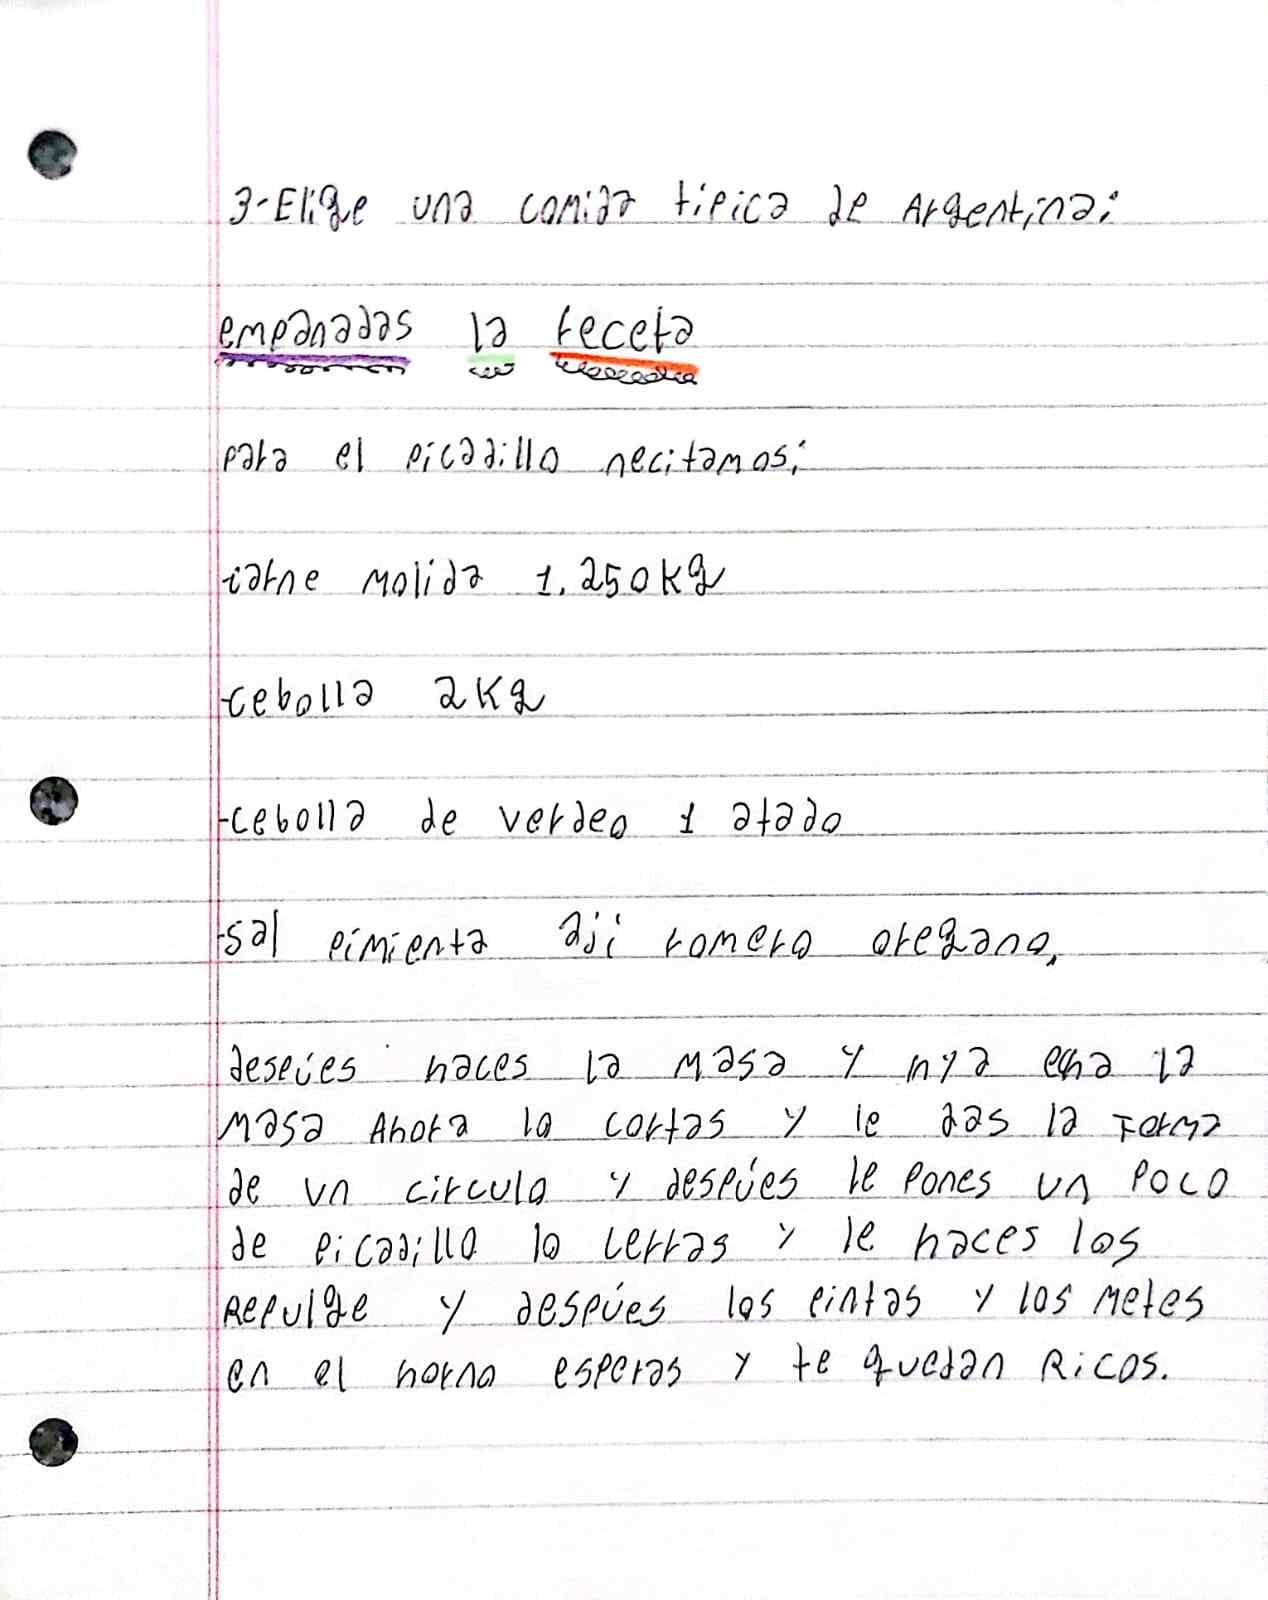 3-Elige una comida tipica de Argentina:
empanadas la receta
para el picadillo necitamos:
-carne molida 1.250kg
-cebolla 2Kg
-cebolla de verdeo 1 atado
-sal pimienta aji romero oregano,
despúes haces la masa y
la
masa Ahora lo cortas y le das la Forma
de un circulo y despúes le pones un poco
de picadillo lo cerras y le haces los
Repulge y despúes los pintas y los metes
en el horno esperas y te quedan Ricos.